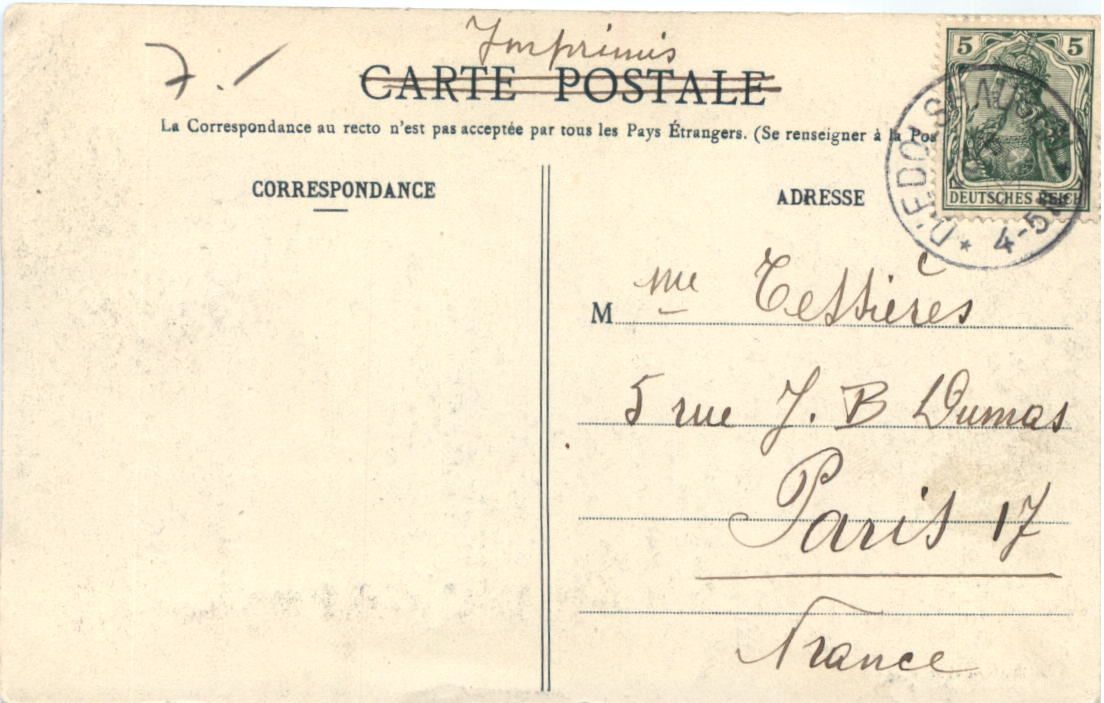 Imprimés
7.
CARTE POSTALE
La Correspondance au recto n'est pas acceptée par tous les Pays Étrangers. (Se renseigner à la Pos
5 5
DEUTSCHES REICH
4-5
CORRESPONDANCE
ADRESSE
M me Tessières
5 rue J. B Dumas
Paris 17
France